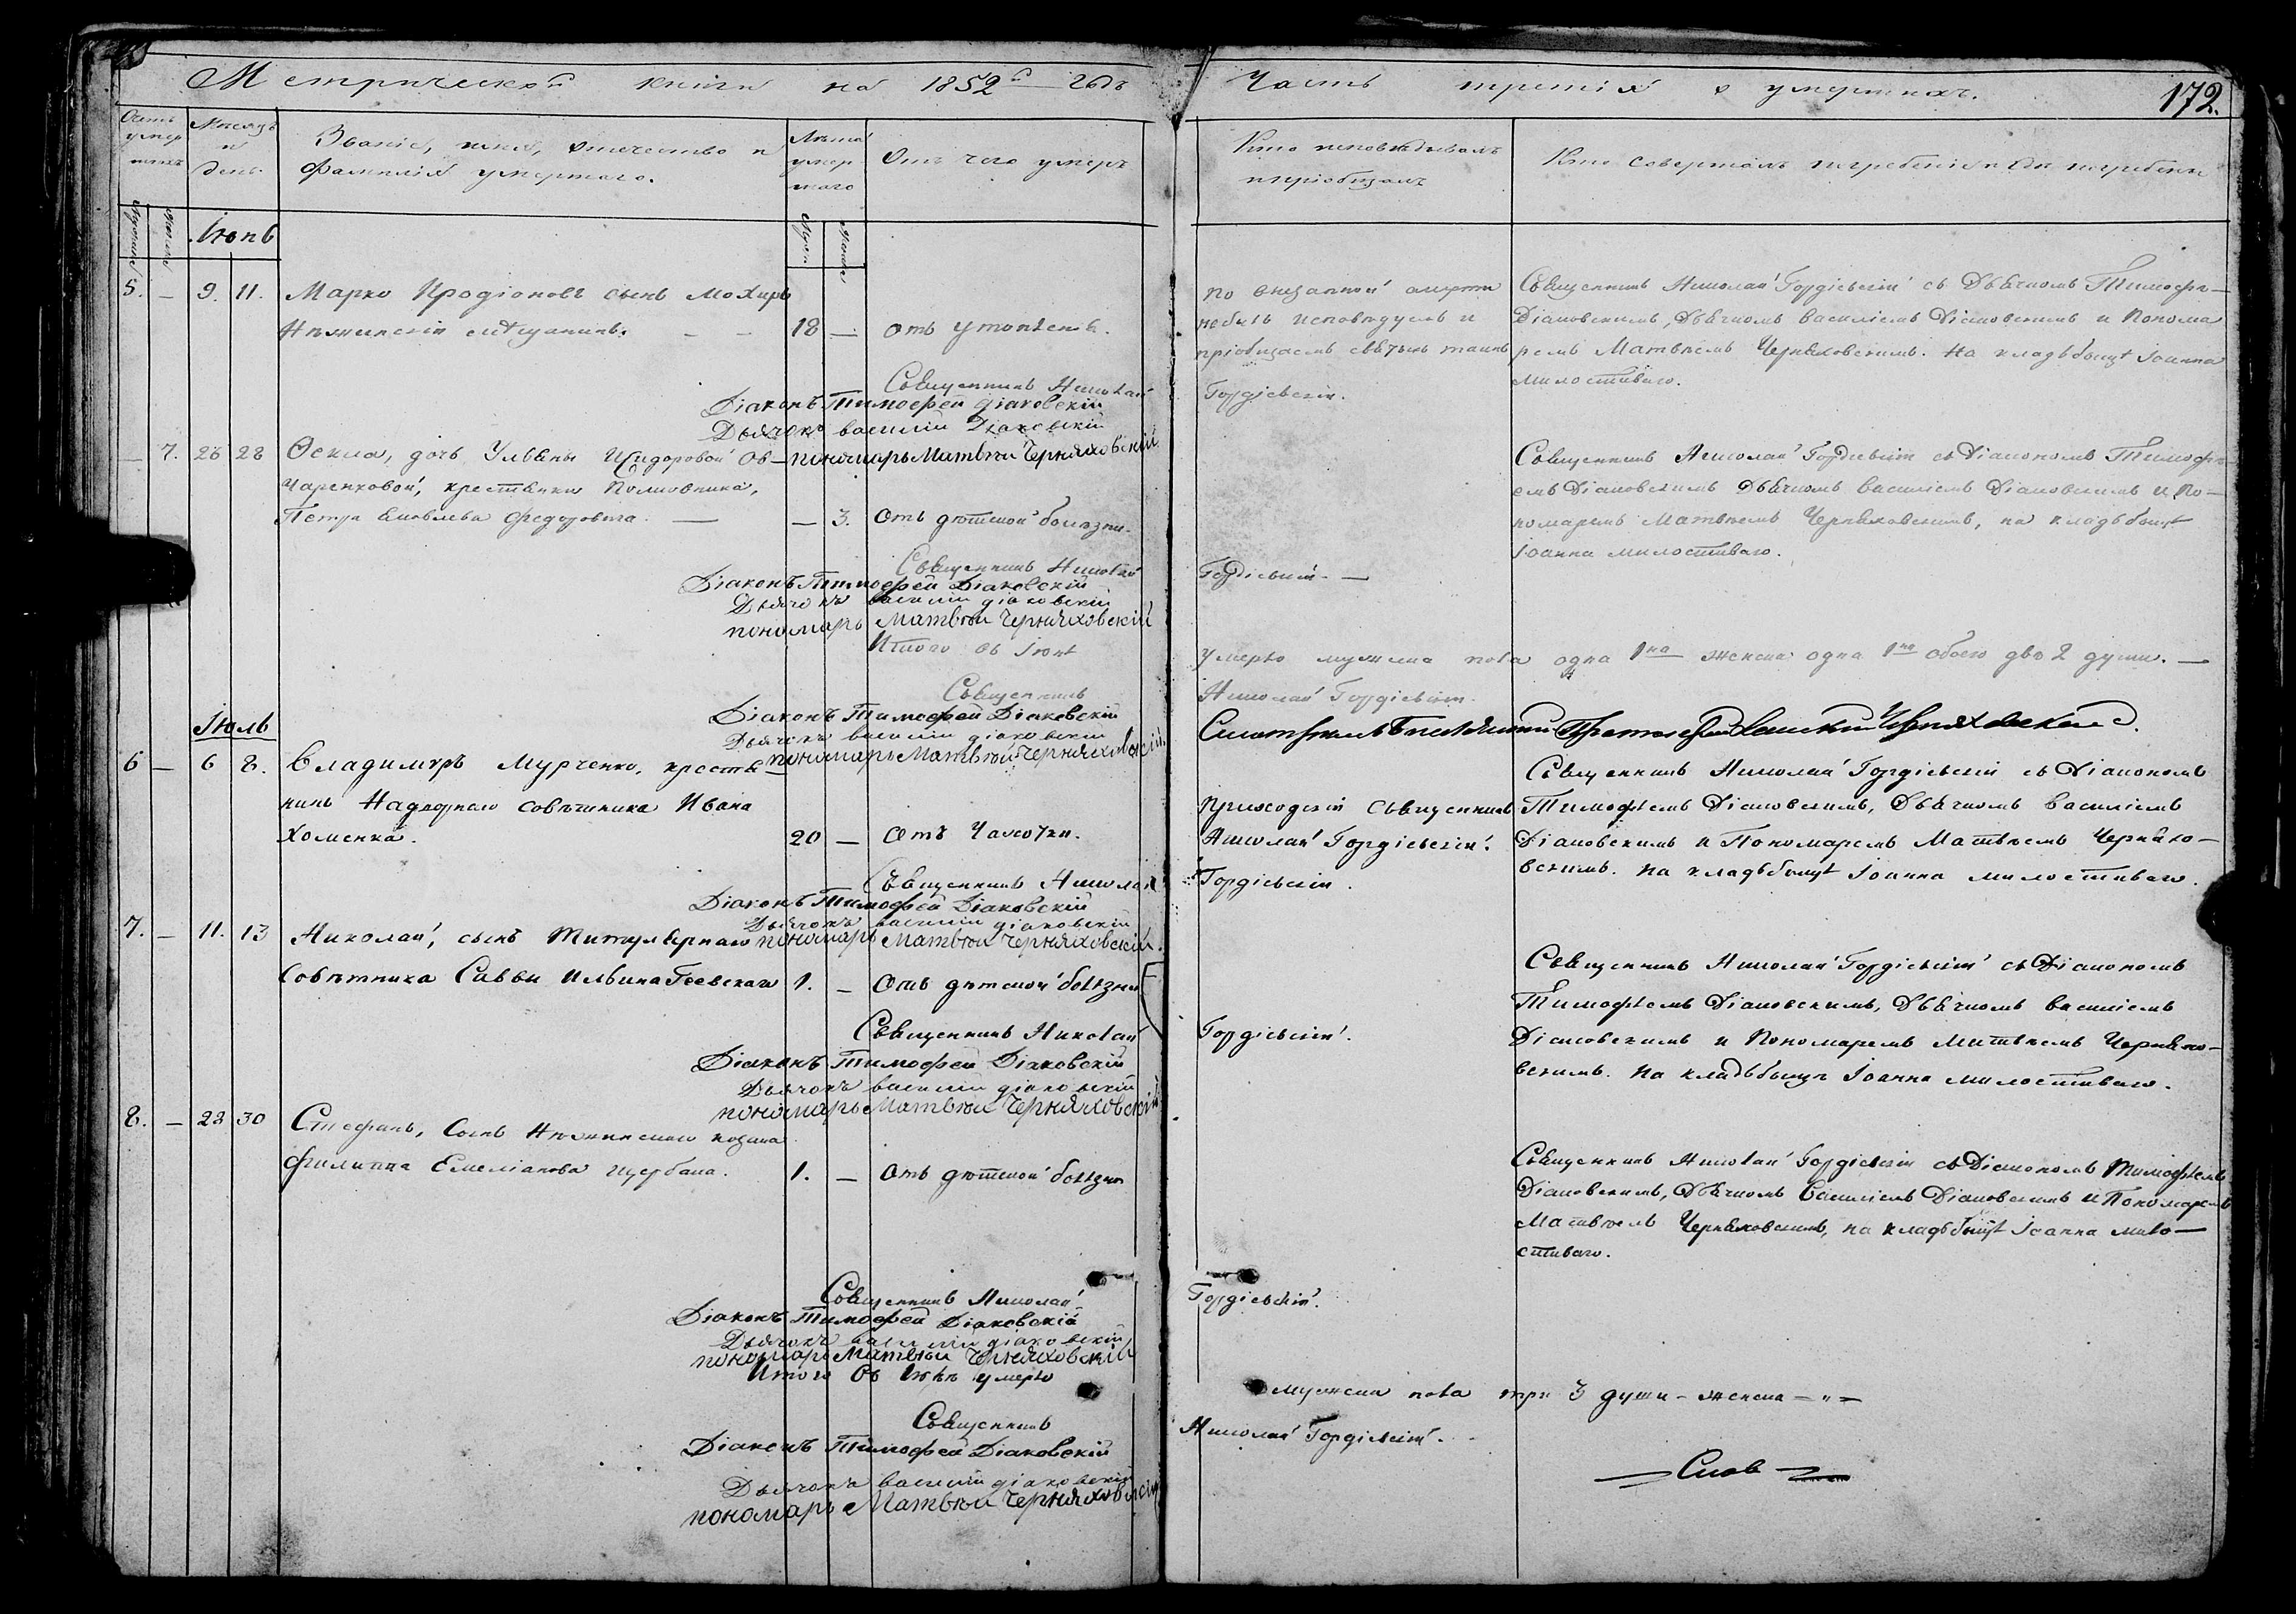 Метрической книги на 1852й годъ
Часть третія о умершихъ.
172.
Счетъ умершихъ
Мѣсяцъ и день
Званіе, имя, отчество и
фамилія умершаго.
Лѣта умершаго
Отъ чего умеръ
Кто исповѣдывалъ
и пріобщалъ
Кто совершалъ погребеніе и гдѣ погребены
Іюнь
5. — 9. 11. Марко Иродіоновъ сынъ
Нѣжинскій мѣщанинъ. — — 18 — отъ утопленія.
по внезапной смерти
небылъ исповѣдуемъ и
пріобщаемъ святыхъ таинъ
Священникъ Николай Гордіевскій съ
Діаковскимъ, Дьячкомъ Василіемъ Діаковскимъ и Понома
ремъ Матвѣемъ Черняховскимъ. На кладбищѣ Іоанна
милостиваго.
Священникъ Николай Гордіевскій.
Діаконъ Тимофей Діаковскій
Дьячокъ Василій Діаковскій
пономарь Матвѣй Черняховскій
— 7. 26 28 дочь Ульяны Исидоровой Ов—
чаренковой, крестьянки Полковника,
Петра Яковлева Федоровича. — — 3. Отъ дѣтской болѣзни.
Священникъ Николай Гордіевскій съ Діакономъ Тимофе
емъ Діаковскимъ Дьячкомъ Василіемъ Діаковскимъ и По—
номаремъ Матвѣемъ Черняховскимъ, на кладбищѣ
Іоанна милостиваго.
Священникъ Николай Гордіевскій. —
Діаконъ Тимофей Діаковскій
Дьячокъ Василій Діаковскій
пономарь Матвѣй Черняховскій
Итого въ Іюнѣ умерло мужеска пола одна 1на женска одна 1на обоего двѣ 2 души. —
Священникъ Николай Гордіевскій.
Діаконъ Тимофей Діаковскій
Дьячокъ Василій Діаковскій
пономарь Матвѣй Черняховскій
Іюль
6 — 6 8. Владимиръ Мурченко, крестья—
нинъ Надворнаго совѣтника Ивана
Хоменка. 20 — Отъ Чахотки.
Приходскій Священникъ
Николай Гордіевскій.
Священникъ Николай Гордіевскій съ Діакономъ
Тимофѣемъ Діаковскимъ, Дьячкомъ Василіемъ
Діаковскимъ и Пономаремъ Матвѣемъ Черняхо—
вскимъ. На кладбищѣ Іоанна милостиваго.
Священникъ Николай Гордіевскій.
Діаконъ Тимофей Діаковскій
Дьячокъ Василій Діаковскій
пономарь Матвѣй Черняховскій
7. — 11. 13 Николай, сынъ Титулярнаго
Совѣтника Саввы Ильина 1. — Отъ дѣтской болѣзни
Священникъ Николай Гордіевскій съ Діакономъ
Тимофѣемъ Діаковскимъ, Дьячкомъ Василіемъ
Діаковскимъ и Пономаремъ Матвѣемъ Черняхо—
вскимъ. На кладбищѣ Іоанна милостиваго.
Священникъ Николай Гордіевскій.
Діаконъ Тимофей Діаковскій
Дьячокъ Василій Діаковскій
пономарь Матвѣй Черняховскій
8. — 28 30 Стефанъ, Сынъ Нѣжинскаго козака
Филиппа Емеліанова Щербака. 1. — Отъ дѣтской болѣзни
Священникъ Николай Гордіевскій съ Діакономъ Тимофѣемъ
Діаковскимъ, Дьячкомъ Василіемъ Діаковскимъ и Пономаремъ
Матвѣемъ Черняховскимъ, на кладбищѣ Іоанна мило—
стиваго.
Священникъ Николай Гордіевскій.
Діаконъ Тимофей Діаковскій
Дьячокъ Василій Діаковскій
пономарь Матвѣй Черняховскій
Итого въ Іюлѣ умерло мужеска пола три 3 души — женска — „ —
Священникъ Николай Гордіевскій.
Діаконъ Тимофей Діаковскій
Дьячокъ Василій Діаковскій
пономарь Матвѣй Черняховскій